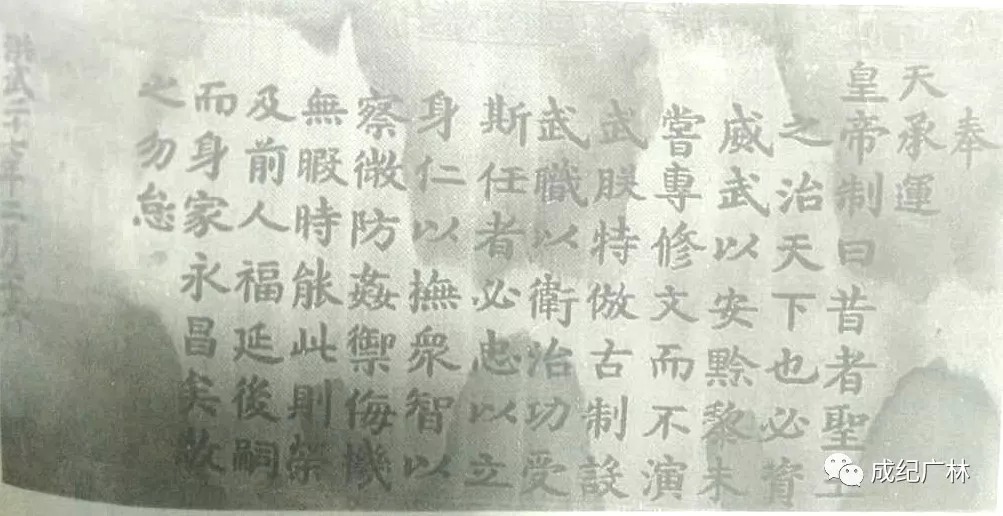 奉
天承運
皇帝制曰昔者聖王
之治天下也必資
威武以安黔黎未
嘗專修文而不演
武朕特倣古制設
武職以衛治功受
斯任者必忠以立
身仁以撫衆智以
察微防姦禦侮機
無暇時能此則榮
及前人福延後嗣
而身家永昌矣敬
之勿怠
洪武二十七年二月
成纪广林